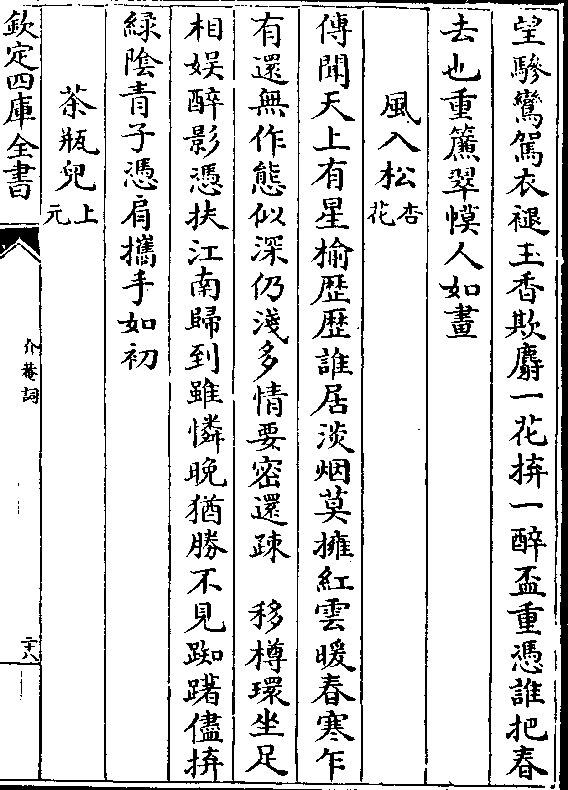 望驂鸞駕衣褪玉香欺麝一花拚一醉盃重憑誰把春
去也重簾翠幙人如畫
風入松杏花
傳聞天上有星榆歷歷誰居淡烟莫擁紅雲暖春寒乍
有還無作態似深仍淺多情要密還踈　移樽環坐足
相娱醉影憑扶江南歸到雖憐晚猶勝不見踟躇儘拚
緑陰青子憑肩攜手如初
茶瓶兒上元
欽定四庫全書
介菴詞
二十八